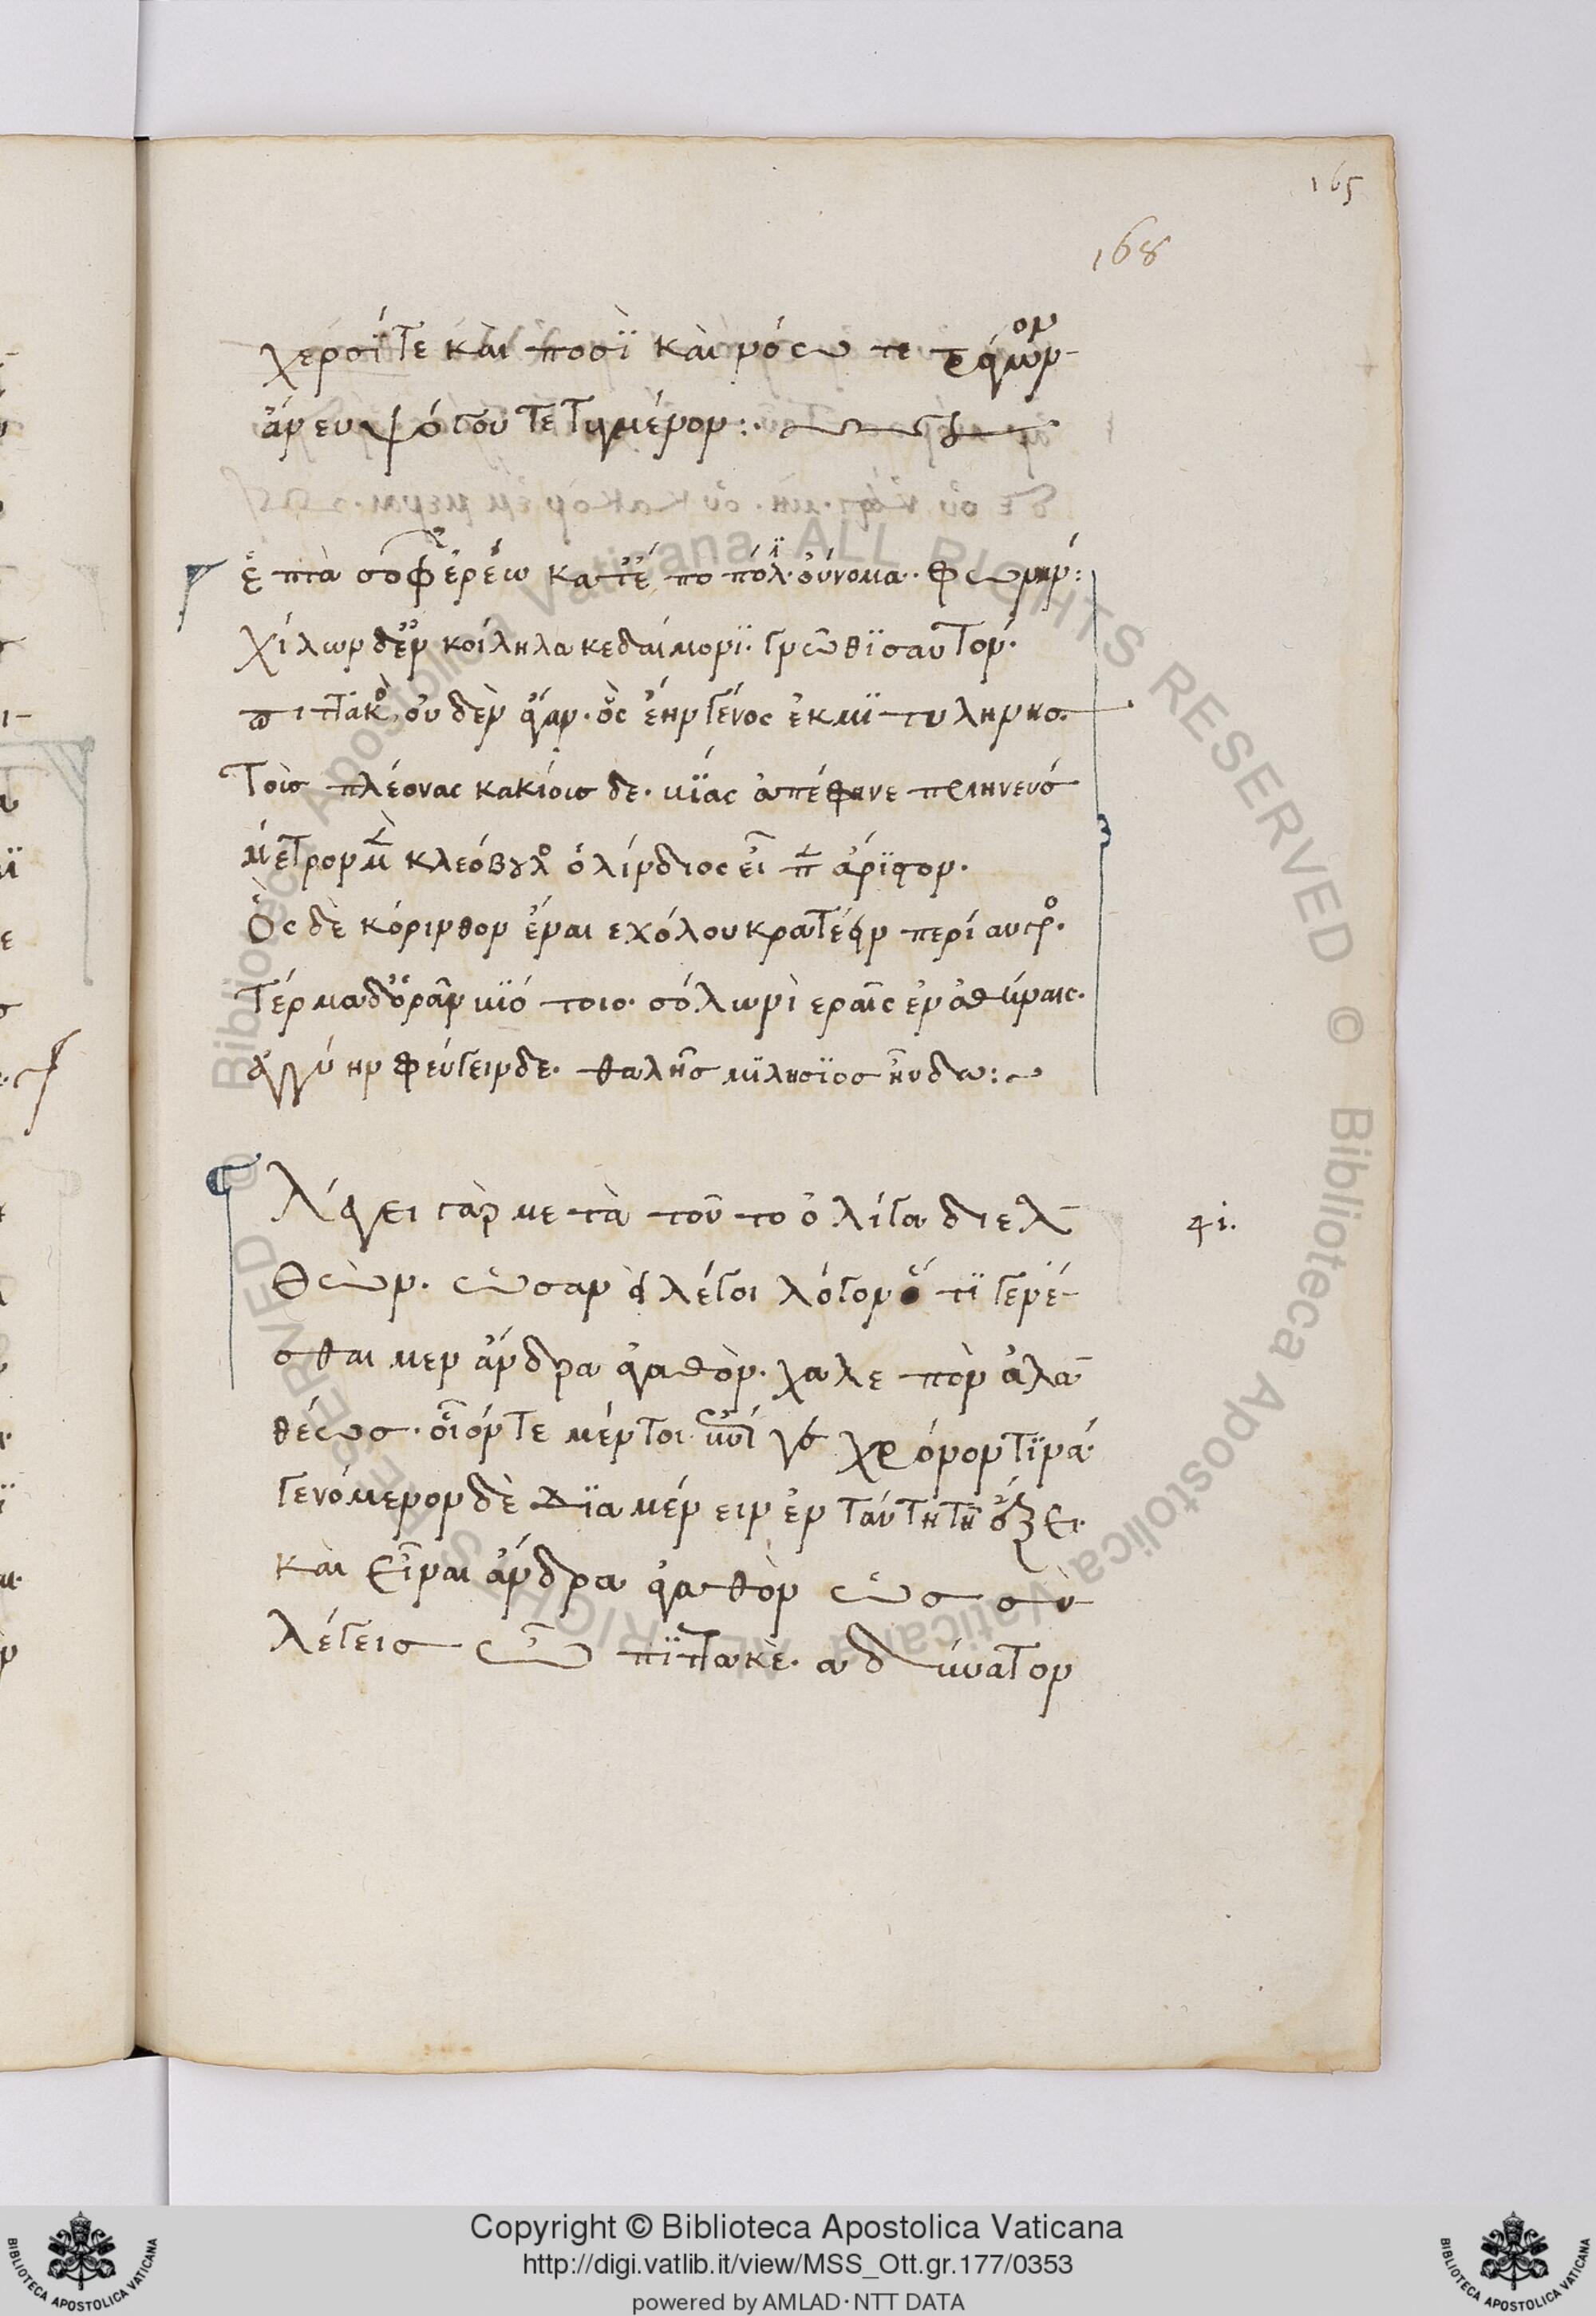 165
168
χερσί τε καὶ ποσὶ καὶ νόω τετράγωνον
ἄνευ ψόγου τετυγμένον:
ἑπτὰ σοφῶν ἐρέω κατ' ἔπος πόλιν οὔνομα φωνήν:
Χίλων δ' ἐν κοίλῃ Λακεδαίμονι· γνῶθι σαυτόν·
πιττακὸς οὐδὲν ἄγαν· ὃς ἔην γένος ἐκ μιτυλήνης·
Τοὺς πλέονας κακίους δε· βίας ἀπέφηνε πριηνεύς
μέτρον μὲν κλεόβουλος ὁ λίνδιος εἶπεν ἄριστον.
Ὃς δὲ κόρινθον ἔναιε χόλου κρατέειν περίανδρος·
Τέρμα δ' ὁρᾶν βιότοιο· σόλων ἱεραῖς ἐν ἀθήναις.
ἐγγύην φεύγειν δε· θαλῆς μιλήσιος ηὔδα:
λέγει γὰρ μετὰ τοῦτο ὀλίγα διελ
θών. ὡς ἂν εἰ λέγοι λόγον ὅτι γενέ-
σθαι μεν ἄνδρα ἀγαθὸν. χαλεπὸν ἀλα
θέως· οἷόν τε μέντοι
γενόμενον δὲ διαμένειν ἐν ταύτῃ τῇ ἕξει·
καὶ εἶναι ἄνδρα ἀγαθὸν ὡς σὺ
λέγεις ὦ πιττακὲ. αδύνατον
Copyright © Biblioteca Apostolica Vaticana
http://digi.vatlib.it/view/MSS_Ott.gr.177/0353
powered by AMLAD·NTT DATA
BIBLIOTECA APOSTOLICA VATICANA
BIBLIOTECA APOSTOLICA VATICANA
© Biblioteca Apostolica Vaticana. ALL RIGHTS RESERVED © Biblioteca Apostolica Vaticana. ALL RIGHTS RESERVED